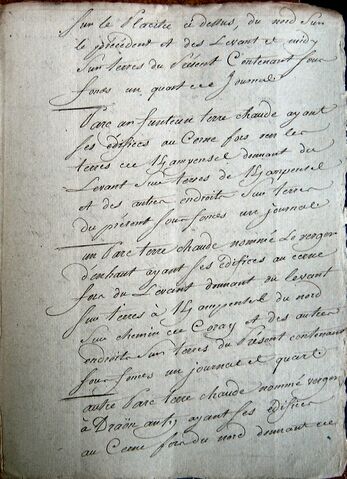 sur le Placitre ci dessus, du nord sur
le précédent et des Levant et midy
sur terres du Présent Contenant sous
fonds un quart de Journal
Parc an feunteun terre chaude ayant
ses édifices au Cerne fors vers les
terres de donnant du
Levant sur terres de
et des autres endroits sur terres
du présent sous fonds un journal
un Parc terre chaude nommé Le verger
d'enhaut ayant ses édifices au cerne
fors du Levant donnant du levant
sur terres à du nord
sur chemin de Coray et des autres
endroits sur terres du Présent contenant
sous fonds un journal et quart
autre Parc terre chaude nommé verger
à ayant ses édifices
au Cerne fors du nord donnant de